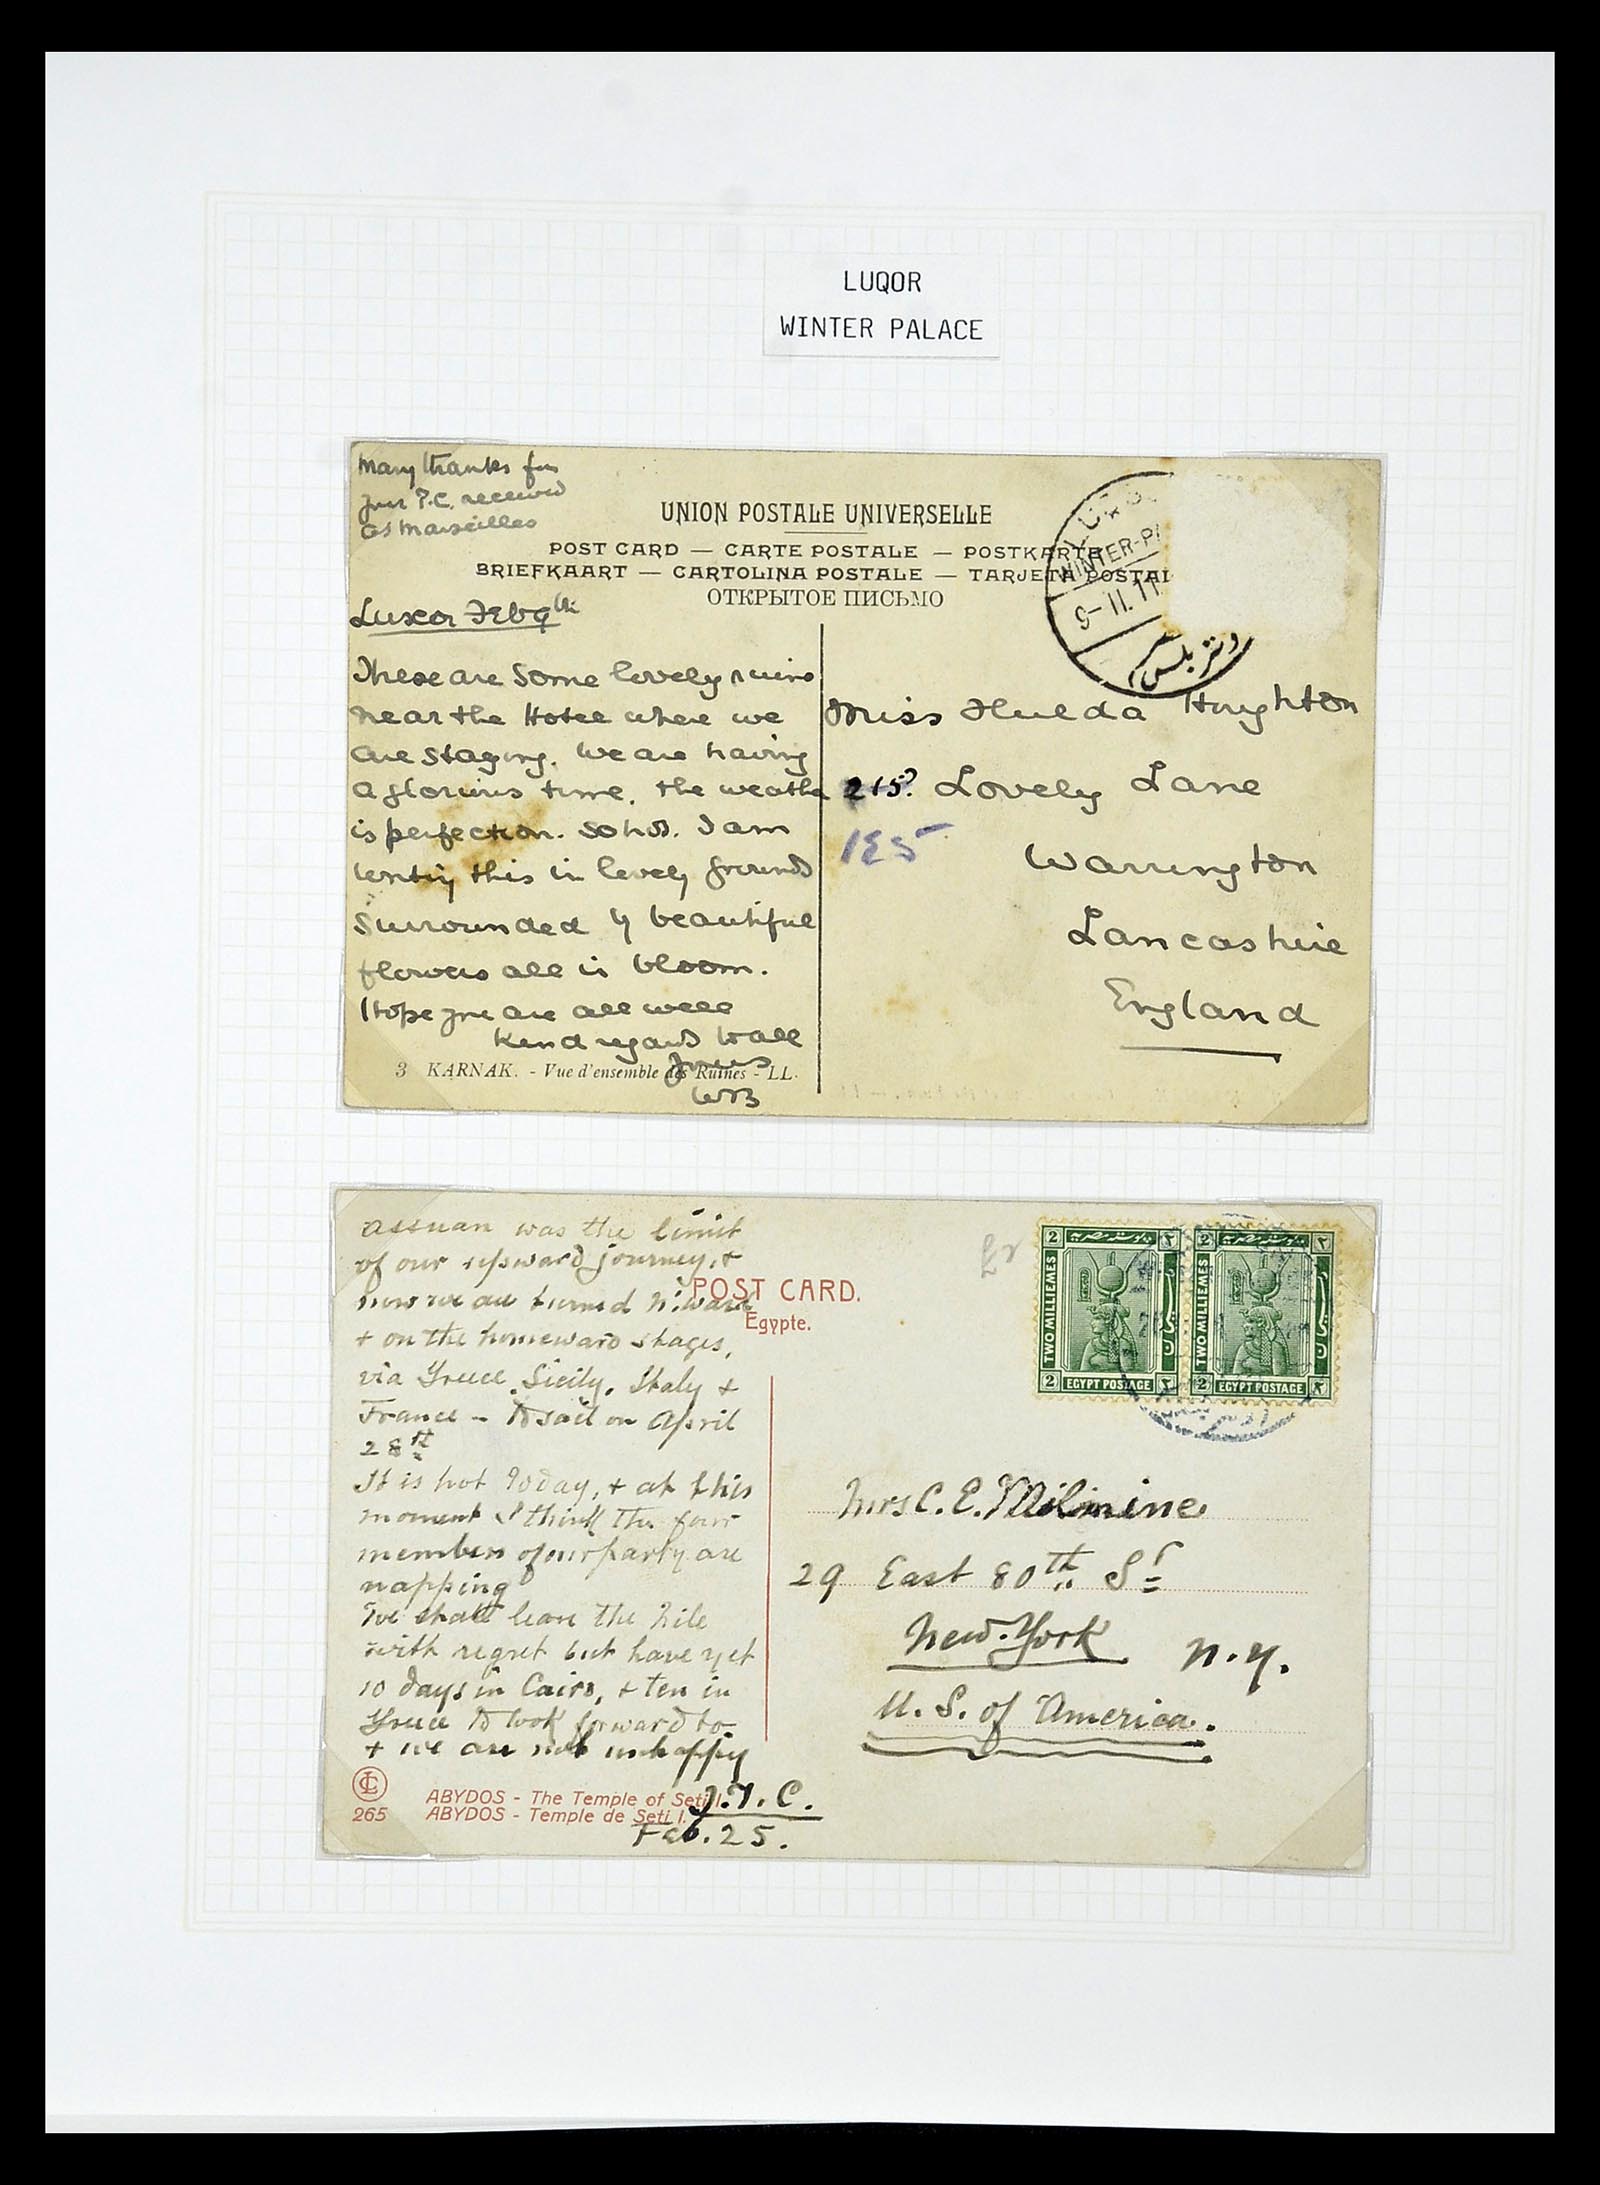 LUQOR
WINTER PALACE
Many thanks for
your P.C. received
at Marseilles
UNION POSTALE UNIVERSELLE
POST CARD — CARTE POSTALE — POSTKARTE
BRIEFKAART — CARTOLINA POSTALE — TARJETA POSTAL
ОТКРЫТОЕ ПИСЬМО
WINTER-PA
9-II.11
ونتر بلس
Luxor Feb 9th
These are some lovely ruins
near the Hotel where we
are staying. We are having
a glorious time. The weather
is perfection. So hot. I am
writing this in lovely grounds
surrounded by beautiful
flowers all in bloom.
I hope you are all well
Kind regards to all
Yours
WB
3 KARNAK. - Vue d'ensemble des Ruines - LL.
Miss Hulda Houghton
215? Lovely Lane
185
Warrington
Lancashire
England
Assuan was the limit
of our upward journey, +
now we are turned N.ward
+ on the homeward stages,
via Greece, Sicily, Italy +
France - to sail on April
28th
It is hot today, + at this
moment I think the four
members of our party are
napping
We shall leave the Nile
with regret but have yet
10 days in Cairo, + ten in
Greece to look forward to
+ we are not unhappy
J.T.C.
Feb. 25.
POST CARD.
Egypte.
LC
265
ABYDOS - The Temple of Seti I.
ABYDOS - Temple de Seti I.
£2
2 ٢
TWO MILLIEMES
2 EGYPT POSTAGE ٢
2 ٢
TWO MILLIEMES
2 EGYPT POSTAGE ٢
Mrs C. E. Milmine
29 East 80th St
New York N.Y.
U.S. of America.